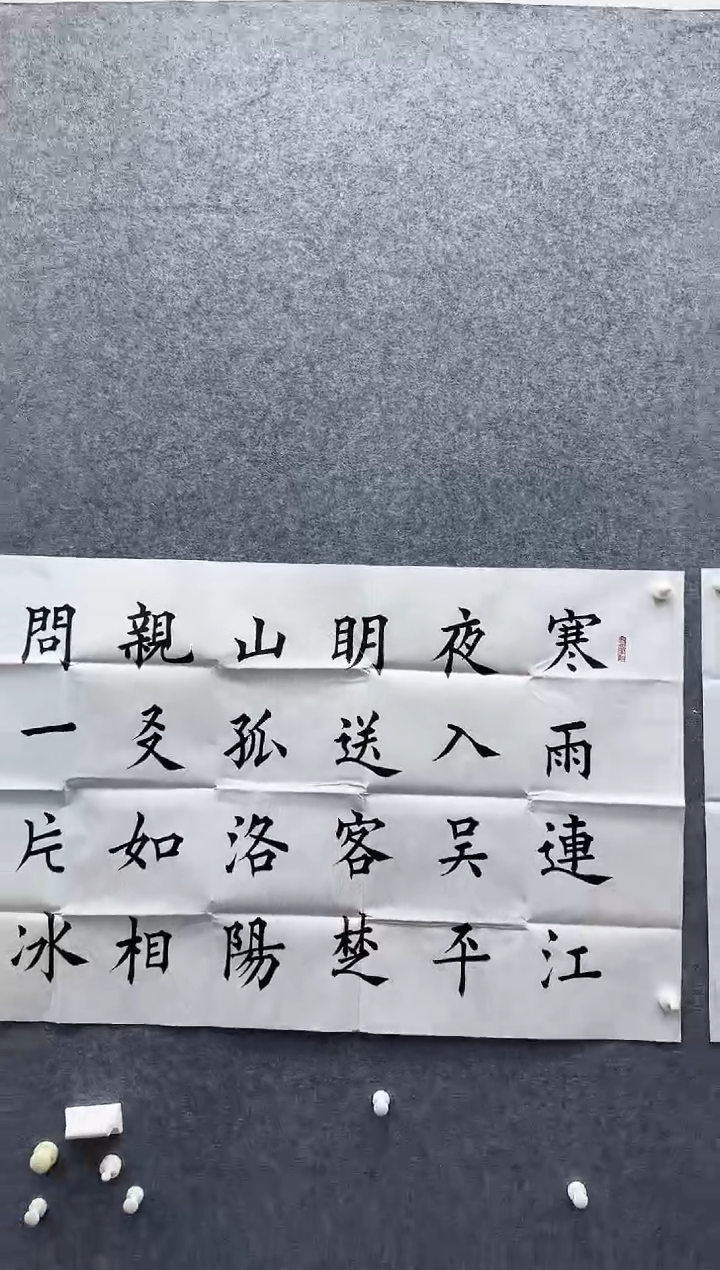 寒雨連江
夜入吳平
眀送客楚
山孤洛陽
親友如相
問一片冰